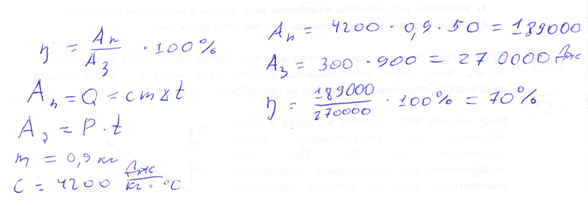 η = Aп/Aз · 100%
Aп = Q = cmΔt
Aз = P · t
m = 0,9 кг
C = 4200 Дж/кг · °C
Aп = 4200 · 0,9 · 50 = 189000
Aз = 300 · 900 = 270000 Дж
η = 189000/270000 · 100% = 70%